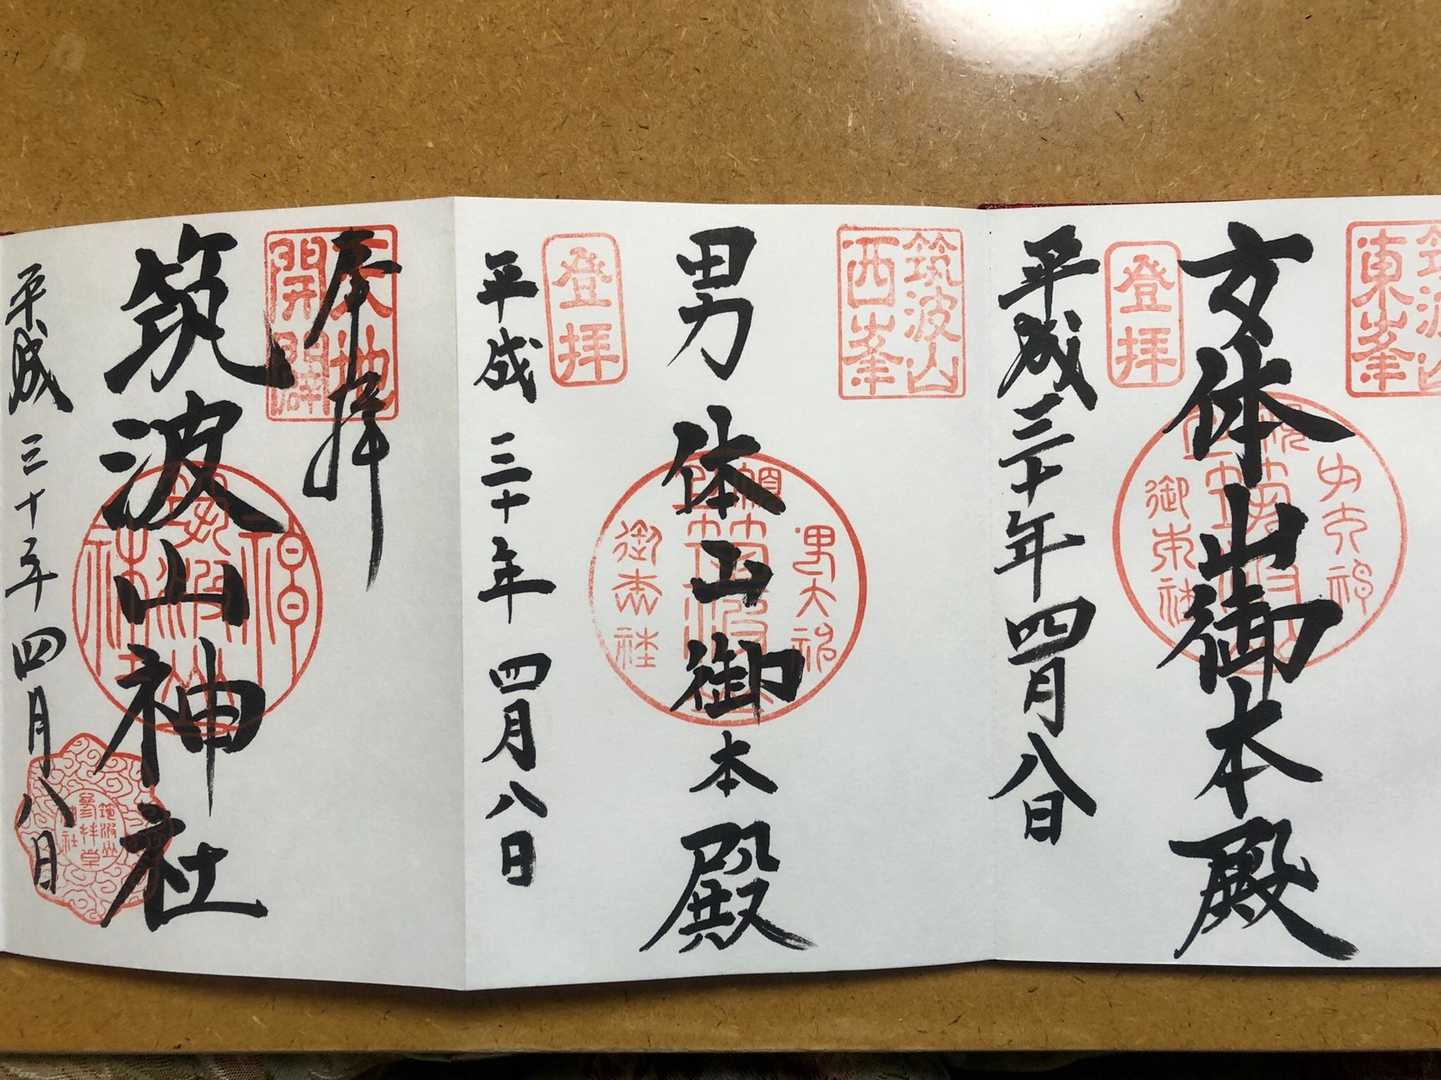 筑波山
東峯
女体山御本殿
登拝
平成三十年四月八日
筑波山
西峯
男体山御本殿
男大神
御本社
登拝
平成三十年四月八日
奉拝
天地
開闢
筑波山神社
平成三十年四月八日
筑波山
参拝堂
神社